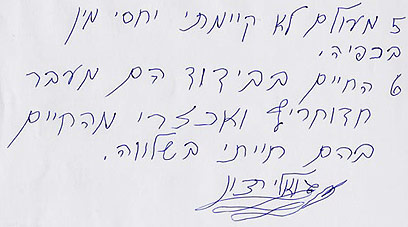 5 מעולם לא קיימתי יחסי מין
בכפיה.
6 החיים בבידוד הם מעבר
חד וחריף ואכזרי מהחיים
בהם חייתי בשלווה.
גואל רצון